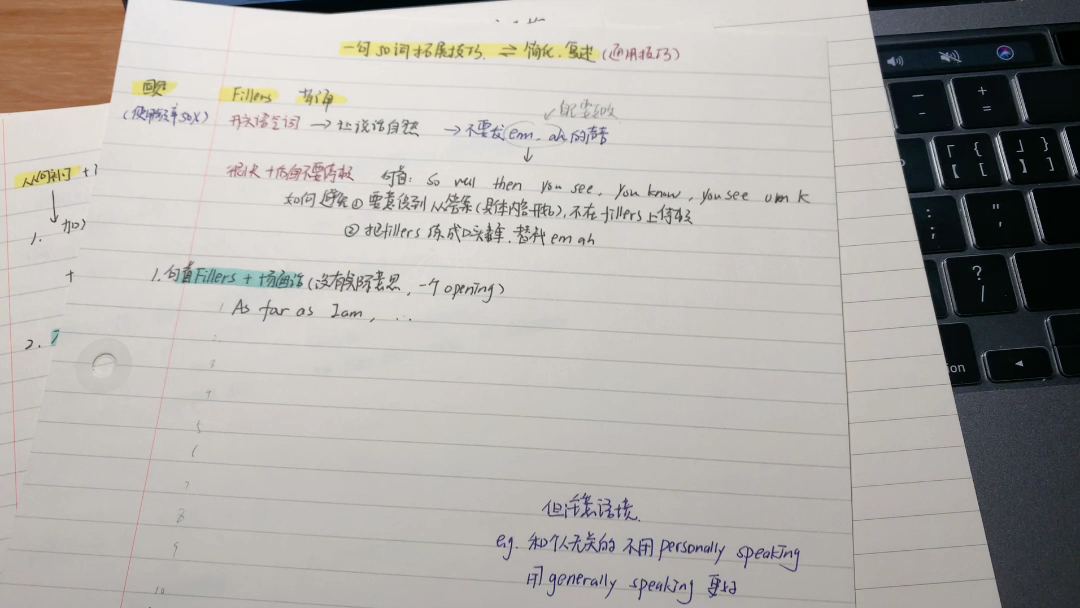 一句50词拓展技巧 ⇌ 简化.复述 (通用技巧)
Fillers
开头语气词 → 让说话自然 → 不要发 em. ah 的声音
句首: so well then you see, you know, you see
如何避免 ① 要意识到从答案(具体内容开始), 不在 fillers 上停顿
② 把 fillers 练成口头禅. 替代 em ah
1. 句首Fillers + 场面话 (没有实际意思, 一个 opening)
As far as I am, ...
3
4
5
6
7
8
9
10
但注意语境.
e.g. 和个人无关的 不用 personally speaking
用 generally speaking 更好
从句补丁 +
1. 加
+
2.